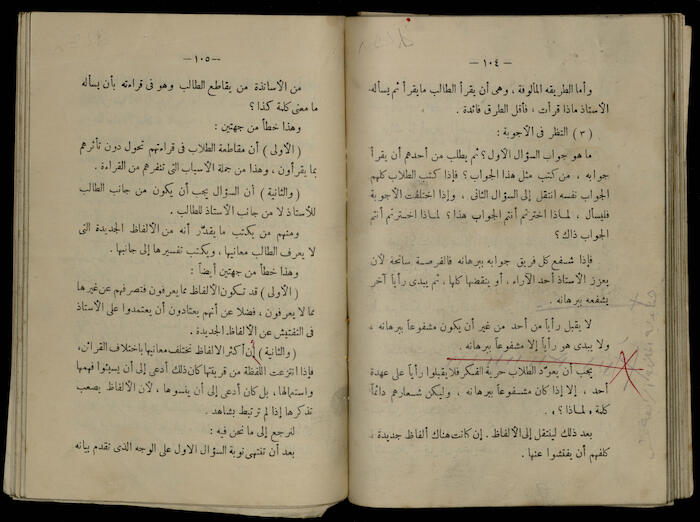 — ١٠٤ —
وأما الطريقه المألوفة ، وهى أن يقرأ الطالب ما يقرأ ثم يسأله
الاستاذ ماذا قرأت ، فأقل الطرق فائدة .
( ٣ ) النظر فى الاجوبة :
ما هو جواب السؤال الاول ؟ ثم يطلب من أحدهم أن يقرأ
جوابه ، من كتب مثل هذا الجواب ؟ فإذا كتب الطلاب كلهم
الجواب نفسه انتقل إلى السؤال الثانى ، وإذا اختلفت الأجوبة
فليسأل ، لماذا اخترتم أنتم الجواب هذا ؟ لماذا اخترتم أنتم
الجواب ذاك ؟
فإذا شفع كل فريق جوابه ببرهانه فالفرصة سانحة لأن
يعزز الاستاذ أحد الآراء ، أو ينقضها كلها ، ثم يبدى رأياً آخر
يشفعه ببرهانه .
لا يقبل رأياً من أحد من غير أن يكون مشفوعاً ببرهانه ،
ولا يبدى هو رأياً إلا مشفوعاً ببرهانه .
يجب أن يعوّد الطلاب حرية الفكر فلا يقبلوا رأياً على عهدة
أحد ، إلا إذا كان مشفوعاً ببرهانه ، وليكن شعارهم دائماً
كلمة « لماذا ؟ » .
بعد ذلك لينتقل إلى الألفاظ . إن كانت هناك ألفاظ جديدة ،
كلفهم أن يفتشوا عنها .
— ١٠٥ —
من الأساتذة من يقاطع الطالب وهو فى قراءته بأن يسأله
ما معنى كلمة كذا ؟
وهذا خطأ من جهتين :
( الأولى ) أن مقاطعة الطلاب فى قراءتهم تحول دون تأثرهم
بما يقرأون ، وهذا من جملة الأسباب التى تنفرهم من القراءة .
( والثانية ) أن السؤال يجب أن يكون من جانب الطالب
للأستاذ لا من جانب الأستاذ للطالب .
ومنهم من يكتب ما يقدّر أنه من الألفاظ الجديدة التى
لا يعرف الطالب معانيها ، ويكتب تفسيرها إلى جانبها .
وهذا خطأ من جهتين أيضاً :
( الأولى ) قد تكون الألفاظ مما يعرفون فتصرفهم عن غيرها
مما لا يعرفون ، فضلا عن أنهم يعتادون أن يعتمدوا على الأستاذ
فى التفتيش عن الألفاظ الجديدة .
( والثانية ) أن أكثر الألفاظ تختلف معانيها باختلاف القرائن ،
فإذا انتزعت اللفظة من قرينتها كان ذلك أدعى إلى أن يسيئوا فهمها
واستعمالها ، بل كان أدعى إلى أن ينسوها ، لأن الألفاظ يصعب
تذكرها إذا لم ترتبط بشاهد .
لنرجع إلى ما نحن فيه :
بعد أن تنتهى نوبة السؤال الاول على الوجه الذى تقدم بيانه